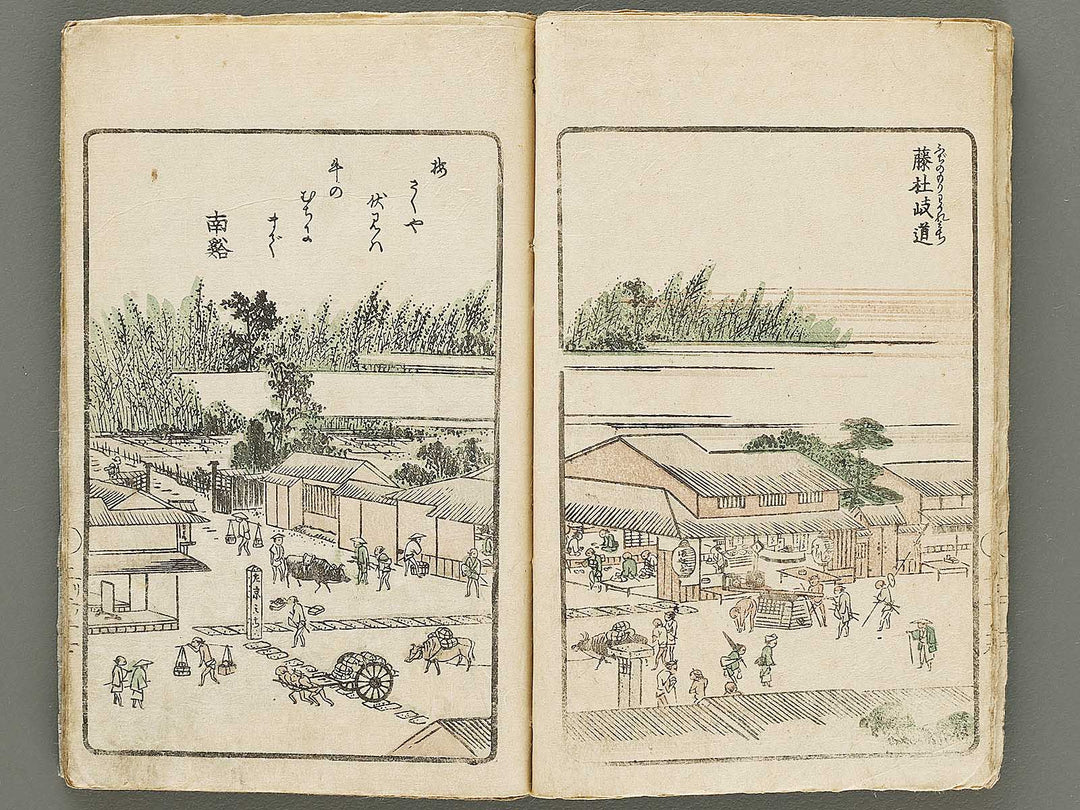 藤杜岐道
ふぢのもりわかれみち
梅
さくや
伏みハ
牛の
むちに
まで
南谿
左京みち